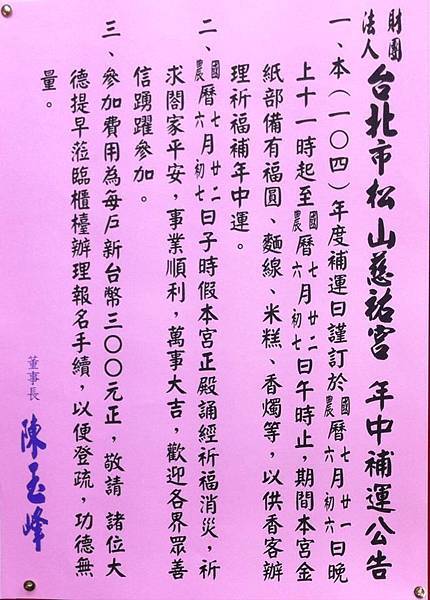 財團法人 台北市松山慈祐宮 年中補運公告
一、本（一〇四）年度補運日謹訂於國農曆七六月廿一初六日晚
上十一時起至國農曆七六月廿二初七日午時止，期間本宮金
紙部備有福圓、麵線、米糕、香燭等，以供香客辦
理祈福補年中運。
二、國農曆七六月廿二初七日子時假本宮正殿誦經祈福消災，祈
求閤家平安，事業順利，萬事大吉，歡迎各界眾善
信踴躍參加。
三、參加費用為每戶新台幣三〇〇元正，敬請 諸位大
德提早蒞臨櫃檯辦理報名手續，以便登疏，功德無
量。
董事長 陳玉峰